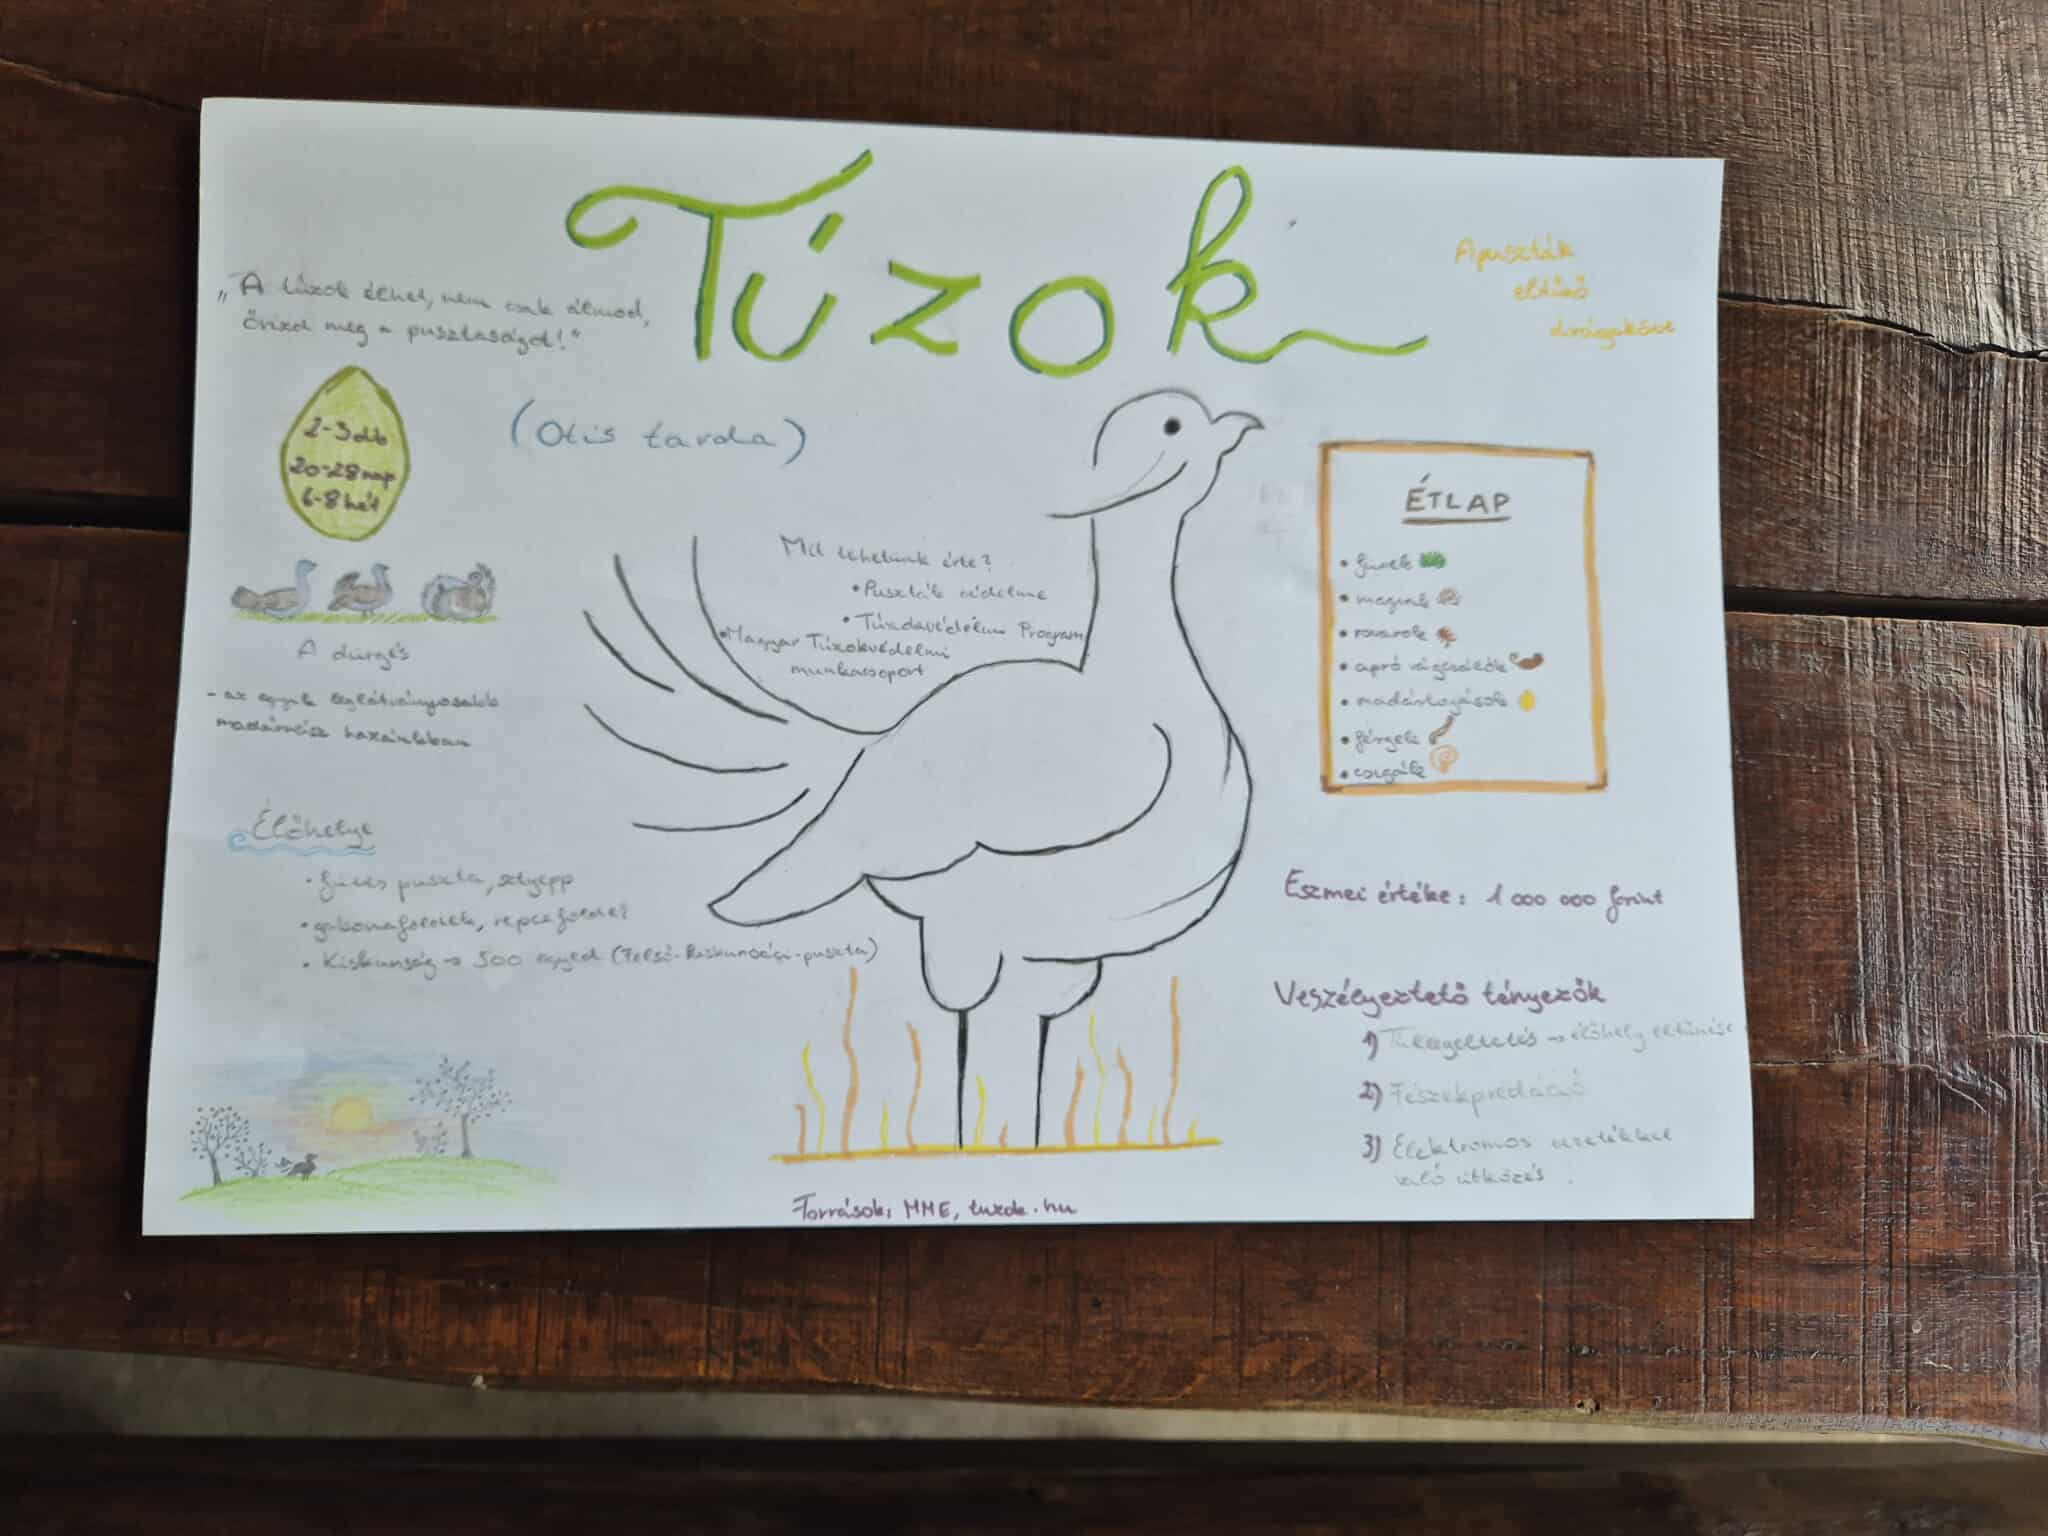 Túzok
„A túzok élhet, nem csak álmod,
őrizd meg a pusztaságot!"
A puszták
eltűnő
drágaköve
(Otis tarda)
2-3 db
20-28 nap
6-8 hét
A dürgés
- az egyik leglátványosabb
madárnász hazánkban
Mit tehetünk érte?
• Puszták védelme
• Túzokvédelmi Program
• Magyar Túzokvédelmi
munkacsoport
ÉTLAP
• füvek
• magvak
• rovarok
• apró rágcsálók
• madártojások
• férgek
• csigák
Élőhelye
• füves puszta, sztyepp
• gabonaföldek, repceföldek
• Kiskunság → 500 egyed (Felső-Kiskunsági-puszta)
Eszmei értéke: 1 000 000 forint
Veszélyeztető tényezők
1) Túllegeltetés → élőhely eltűnése
2) Fészekpredáció
3) Elektromos vezetékkel
való ütközés.
Források: MME, tuzok.hu